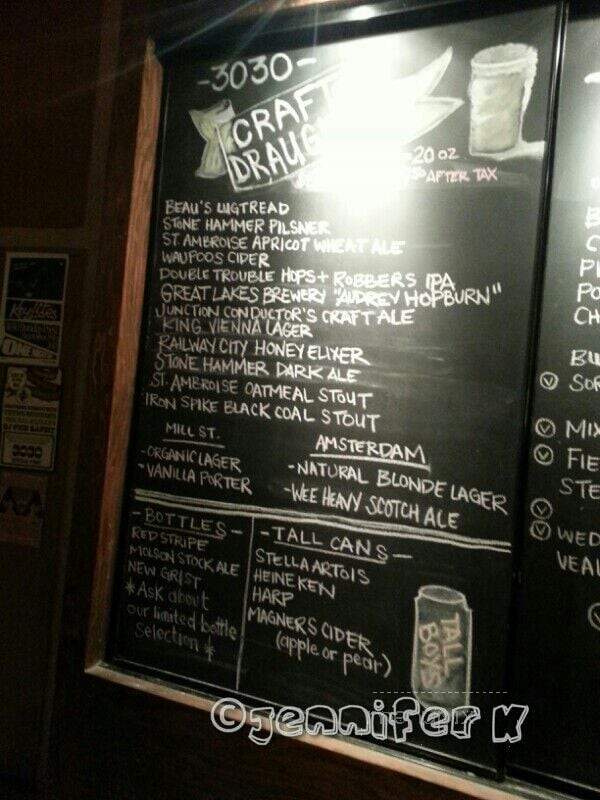 -3030-
CRAFT
DRAUG
20 OZ
AFTER TAX
BEAU'S LUGTREAD
STONE HAMMER PILSNER
ST. AMBROISE APRICOT WHEAT ALE
WAUPOOS CIDER
DOUBLE TROUBLE HOPS + ROBBERS IPA
GREAT LAKES BREWERY "AUDREY HOPBURN"
JUNCTION CONDUCTOR'S CRAFT ALE
KING VIENNA LAGER
RAILWAY CITY HONEY ELIXER
STONE HAMMER DARK ALE
ST. AMBROISE OATMEAL STOUT
IRON SPIKE BLACK COAL STOUT
MILL ST.
-ORGANIC LAGER
-VANILLA PORTER
AMSTERDAM
-NATURAL BLONDE LAGER
-WEE HEAVY SCOTCH ALE
-BOTTLES-
RED STRIPE
MOLSON STOCK ALE
NEW GRIST
*Ask about
our limited bottle
selection*
-TALL CANS-
STELLA ARTOIS
HEINEKEN
HARP
MAGNERS CIDER
(apple or pear)
TALL
BOYS
MIX
FIE
STE
WED
VEAL
©jennifer K